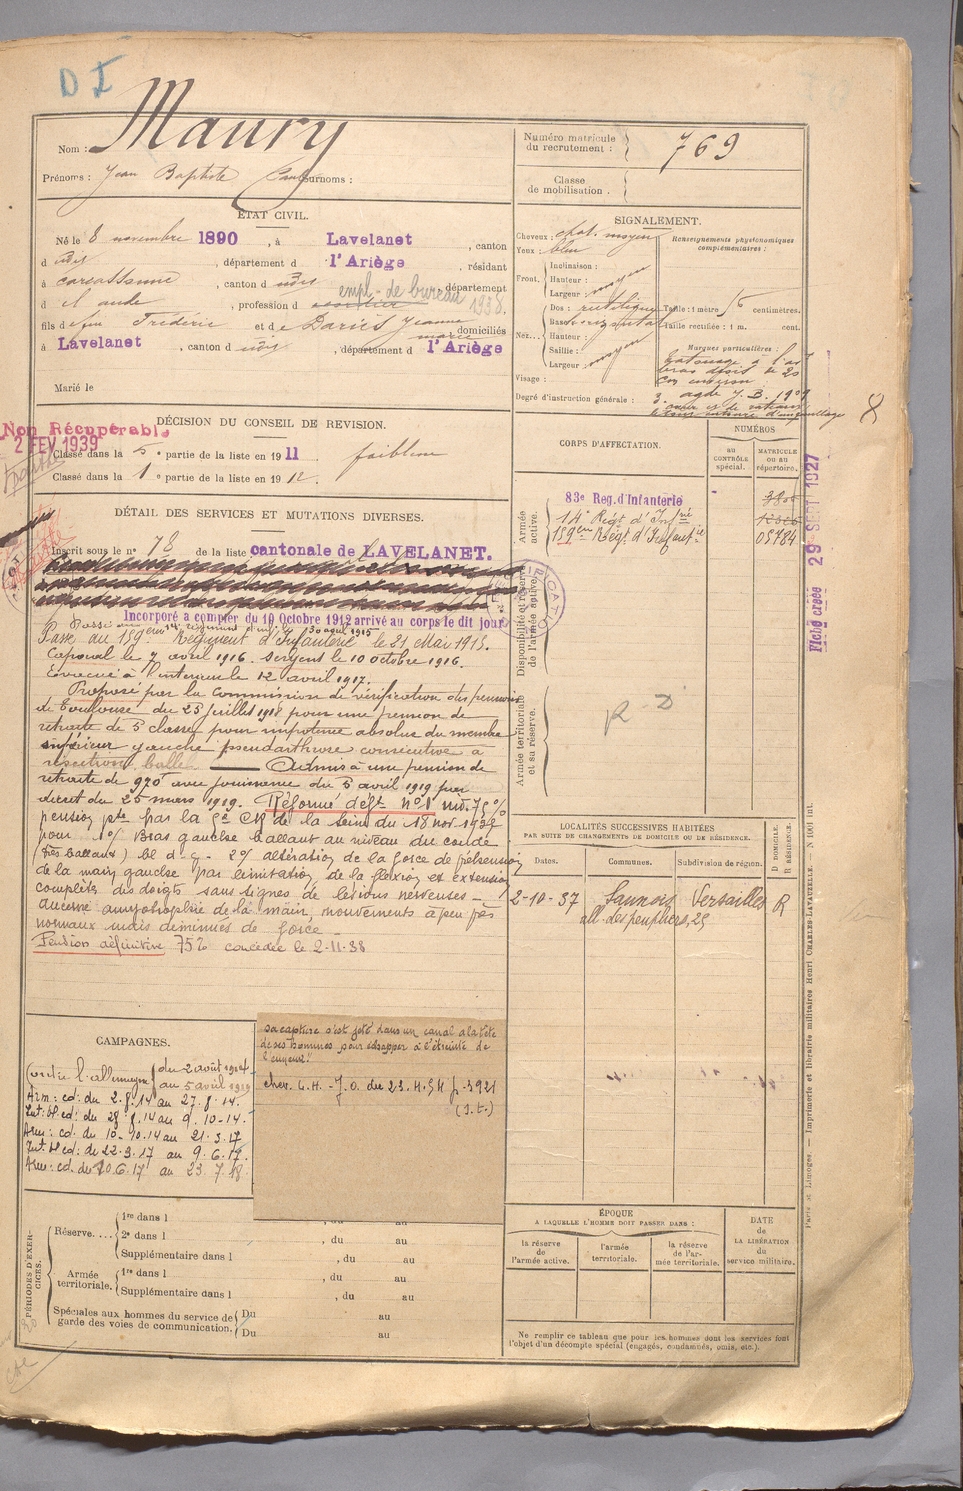 D I
Nom : Maury
Prénoms : Jean Baptiste Paul Surnoms :
Numéro matricule du recrutement : 769
Classe de mobilisation .
ÉTAT CIVIL.
Né le 8 novembre 1890, à Lavelanet, canton
d udit, département d l'Ariège, résidant
à carcassonne, canton d udit, département
d el aude, profession d empl. de bureau 1938.
fils de feu Frédéric et de Dariès Jeanne marie domiciliés
à Lavelanet, canton d udit, département d l'Ariège
Marié le
SIGNALEMENT.
Cheveux : chat. moyen
Yeux : bleu
Renseignements physionomiques complémentaires :
Front. Inclinaison :
Hauteur : moyen
Largeur :
Nez... Dos : rectiligne
Base : horizontal
Hauteur :
Saillie : moyen
Largeur :
Visage :
Taille : 1 mètre centimètres.
Taille rectifiée : 1 m. cent.
Marques particulières :
tatouage à l'av
bras droit de 20
cm environ
Degré d'instruction générale : 3.
8
DÉCISION DU CONSEIL DE REVISION.
Non Récupérable
2 FEV 1939
Classé dans la 5e partie de la liste en 1911 faiblesse
Classé dans la 1e partie de la liste en 1912.
DÉTAIL DES SERVICES ET MUTATIONS DIVERSES.
Inscrit sous le n° 78 de la liste cantonale de LAVELANET.
Incorporé à compter du 10 Octobre 1912 arrivé au corps le dit jour
Passé au 14e régiment d'inf. le 30 avril 1915
Passé au 159ème Régiment d'Infanterie le 21 Mai 1915.
Caporal le 7 avril 1916. Sergent le 10 octobre 1916.
Evacué à l'intérieur le 12 avril 1917.
Proposé par la Commission de vérification des pensions
de Toulouse du 23 Juillet 1918 pour une pension de
retraite de 5 classe pour impotence absolue du membre
supérieur gauche pseudarthrose consécutive à
résection balle. Admis à une pension de
retraite de 970f avec jouissance du 5 avril 1919 par
décret du 25 mars 1919. Réformé déft n°1 75%
pension pte par la CR de la Seine du 18 nov. 1932
pour 1°/ Bras gauche ballant au niveau du coude
(très ballant) bl d. g. 2°/ altération de la force de préhension
de la main gauche par limitation de la flexion et extension
complète des doigts sans signes de lésions nerveuses -
aucune amyotrophie de la main, mouvements à peu près
normaux mais diminués de force -
Pension définitive 75% concédée le 2-11-38
CORPS D'AFFECTATION.
NUMÉROS
au CONTRÔLE spécial.
MATRICULE ou au répertoire.
Armée active.
83e Reg. d'Infanterie
14e Régt d'Infrie
159ème Régt d'Infanterie 05784
Disponibilité et réserve de l'armée active.
Armée territoriale et sa réserve.
R - D
Fiche créée 29 SEPT 1927
LOCALITÉS SUCCESSIVES HABITÉES
PAR SUITE DE CHANGEMENTS DE DOMICILE OU DE RÉSIDENCE.
Dates. Communes. Subdivision de région. D DOMICILE. R RÉSIDENCE.
2-10-37 Sannois Versailles R
all. des peupliers, 25
CAMPAGNES.
Contre l'allemagne du 2 août 1914
au 5 avril 1919
Arm : cd : du 2.8.14 au 27.8.14.
Int : bl cd : du 28.8.14 au 9.10-14.
Arm : cd : du 10-10.14 au 21.3.17
Int : bl cd : du 22.3.17 au 9.6.17.
Arm : cd. du 10.6.17 au 23.7.18.
sa capture s'est jeté dans un canal à la tête
de ses hommes pour échapper à l'étreinte de
l'ennemi."
chev. L.H. - J.O. du 23.4.54 p. 3921
(S.t.)
PÉRIODES D'EXERCICES.
Réserve.... 1re dans l
2e dans l , du au
Supplémentaire dans l , du au
Armée territoriale. 1re dans l , du au
Supplémentaire dans l , du au
Spéciales aux hommes du service de garde des voies de communication. Du au
Du au
ÉPOQUE
A LAQUELLE L'HOMME DOIT PASSER DANS :
la réserve de l'armée active.
l'armée territoriale.
la réserve de l'armée territoriale.
DATE de LA LIBÉRATION du service militaire.
Ne remplir ce tableau que pour les hommes dont les services font
l'objet d'un décompte spécial (engagés, condamnés, omis, etc.).
Paris et Limoges. — Imprimerie et librairie militaires Henri CHARLES-LAVAUZELLE. — N° 1001 int.